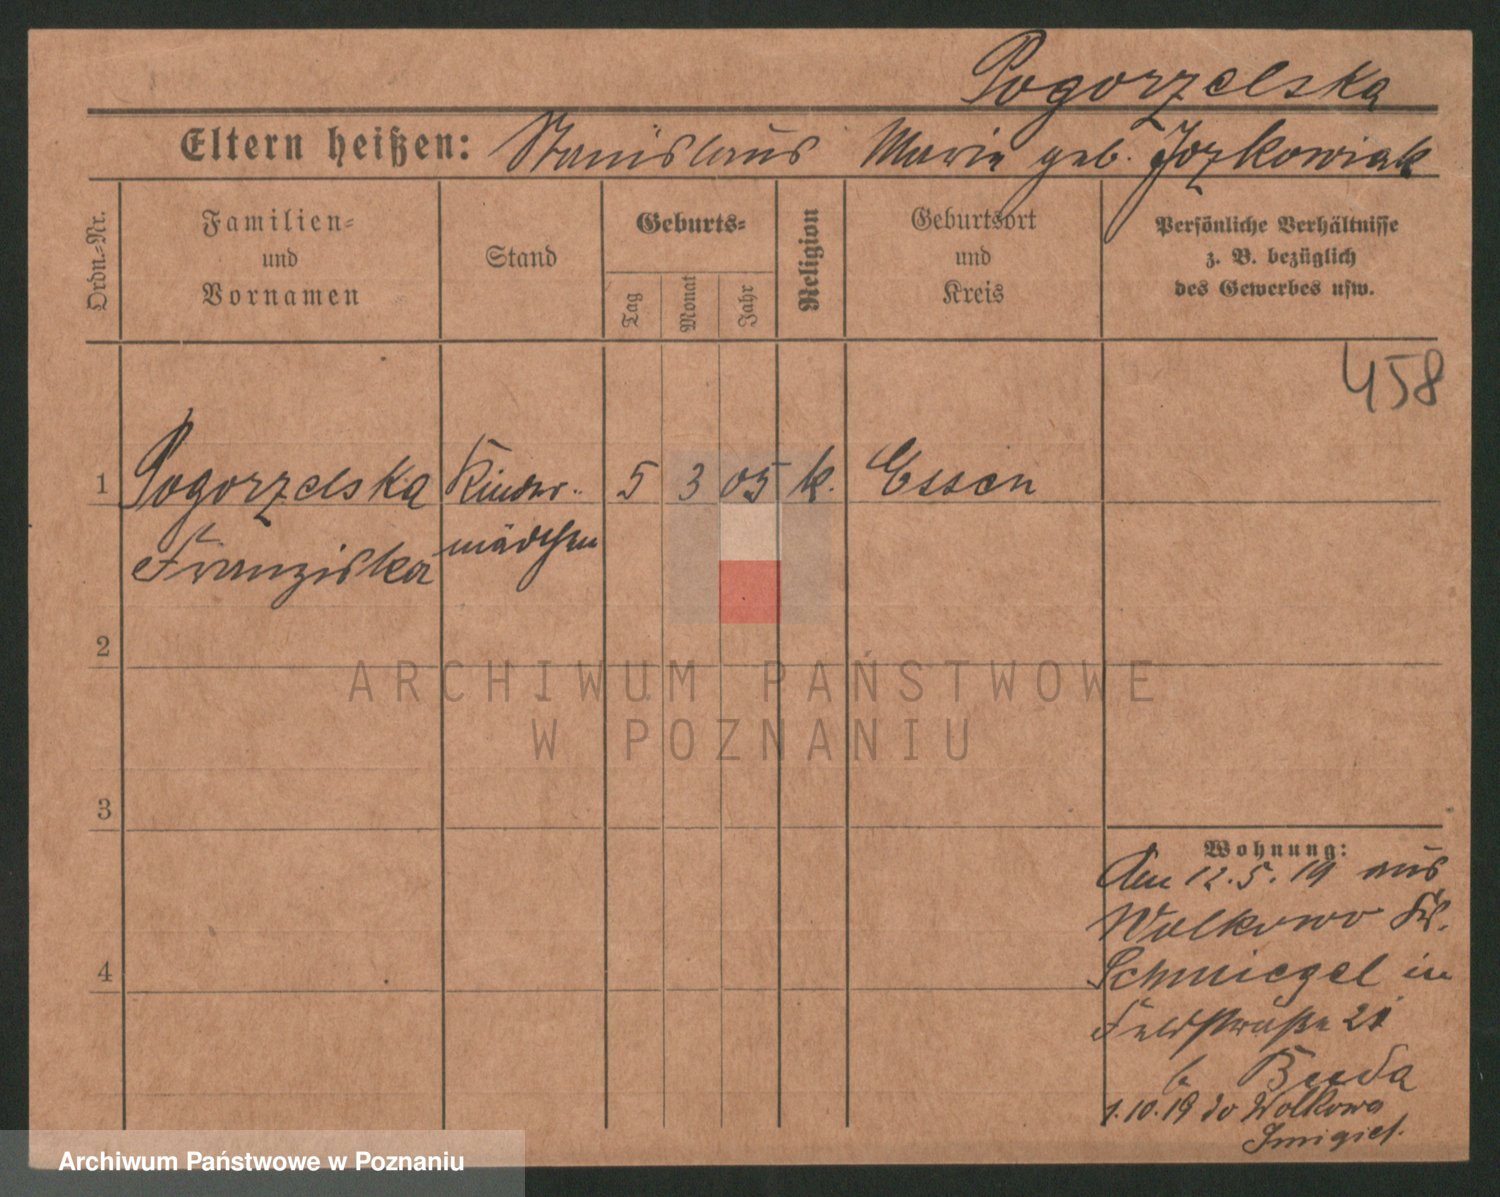 Pogorzelska
Eltern heißen: Stanislaus Marie geb. Jozkowiak
Ordn.-Nr.
Familien-
und
Vornamen
Stand
Geburts-
Tag
Monat
Jahr
Religion
Geburtsort
und
Kreis
Persönliche Verhältnisse
z. B. bezüglich
des Gewerbes usw.
458
1 Pogorzelska Kinder- 5 3 05 k. Essen
Franziska mädchen
2
3
4
Wohnung:
Am 12.5.19 aus
Wolkowo Krs.
Schmiegel in
Feldstraße 21
b Buda
1.10.19 do Wolkowa
Smigiel.
ARCHIWUM PAŃSTWOWE
W POZNANIU
Archiwum Państwowe w Poznaniu